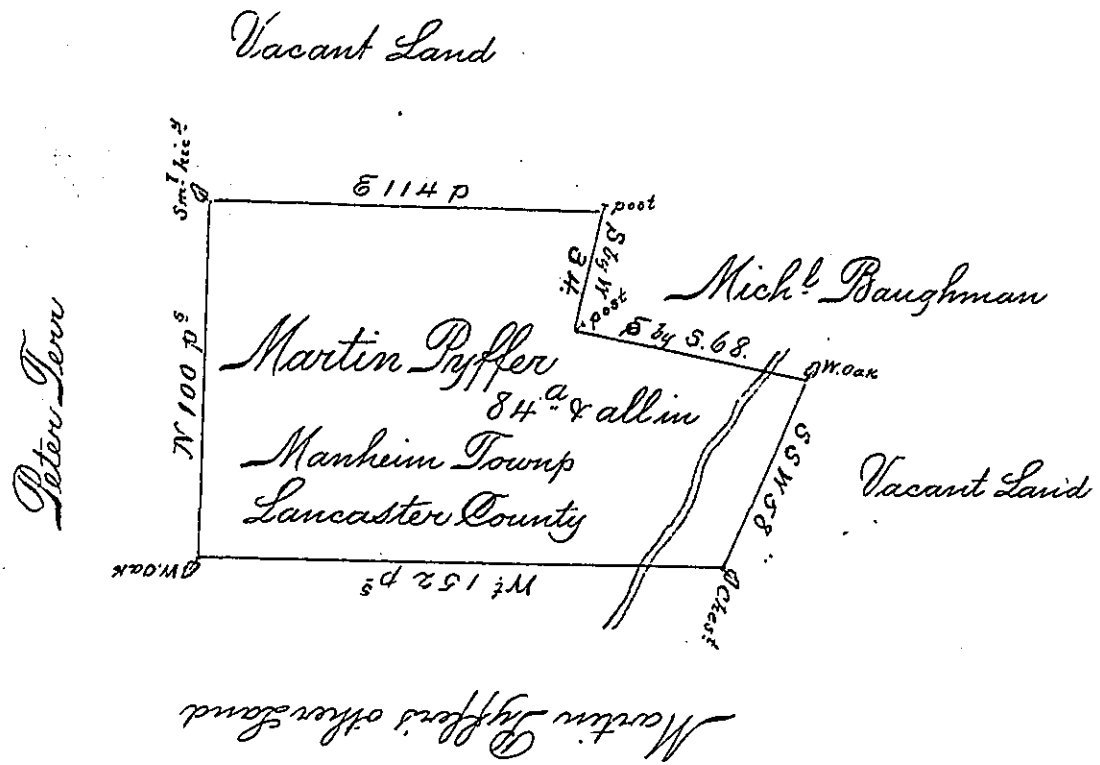 Vacant Land
Sm.l hic.y
E 114 p
post
S by W
34.
post
Mich.l Baughman
E by S. 68.
W. Oak
Peter Terr
N 100 p.s
Martin Pyffer
84 a. & all in
Manheim Townp
Lancaster County
SSW 58 "
Vacant Land
W. Oak
W.t 152 p.s
Ches.t
Martin Pyffer's other Land